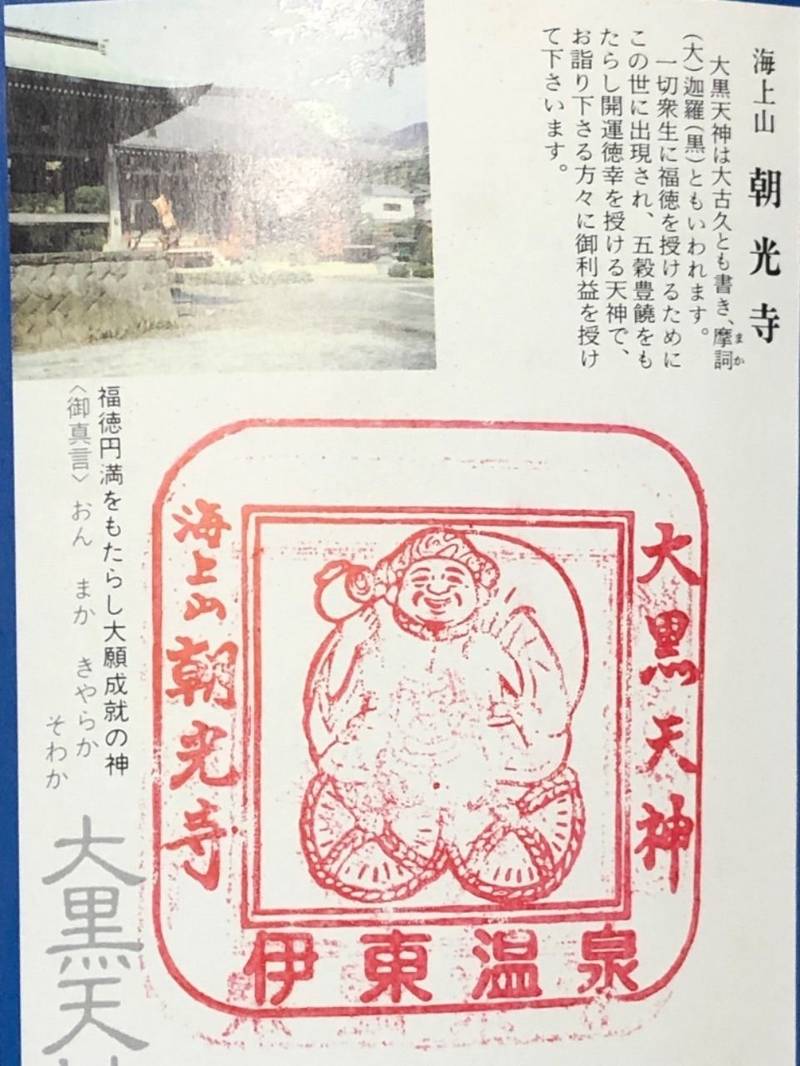 海上山 朝光寺
大黒天神は大古久とも書き、摩訶
まか
(大)迦羅(黒)ともいわれます。
一切衆生に福徳を授けるために
この世に出現され、五穀豊饒をも
たらし開運徳幸を授ける天神で、
お詣り下さる方々に御利益を授け
て下さいます。
福徳円満をもたらし大願成就の神
〈御真言〉 おん まか きやらか
そわか
大黒天神
海上山 朝光寺
伊東温泉
大黒天